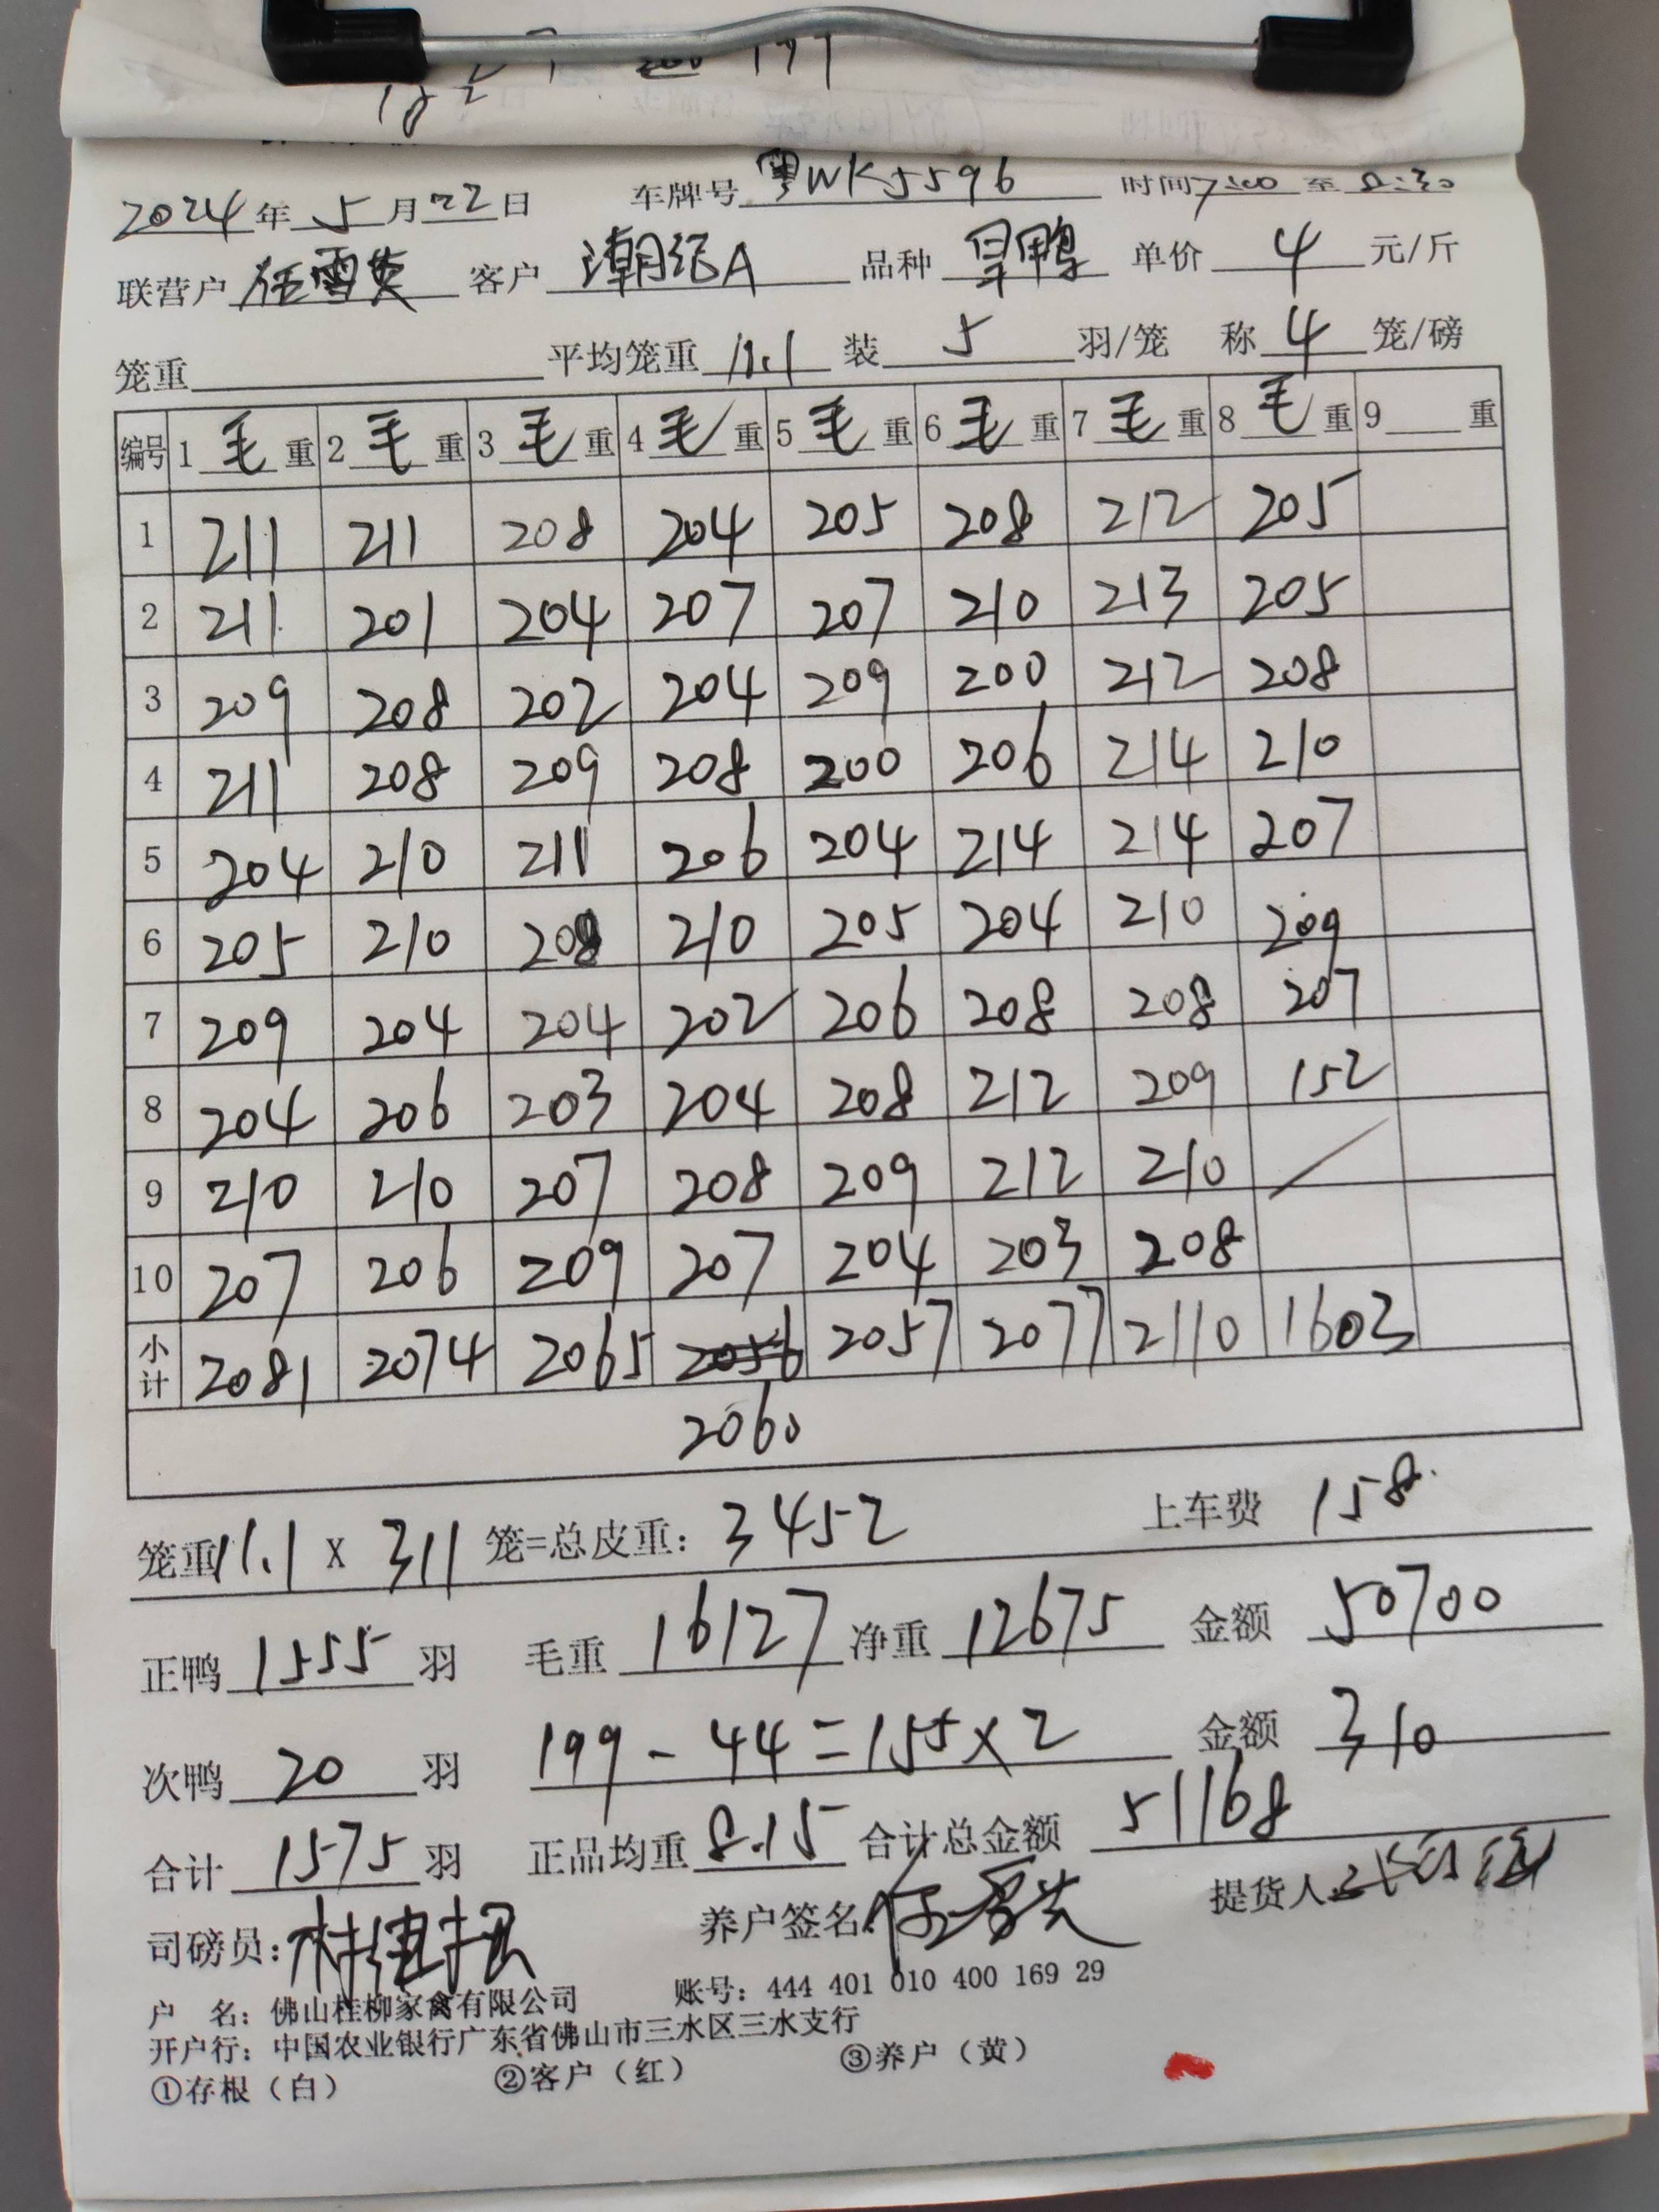 182 197
2024年 5月22日 车牌号 粤WK5596 时间7:00 至
联营户 任雪芬 客户 潮记A 品种 旱鸭 单价 4 元/斤
笼重 平均笼重 11.1 装 5 羽/笼 称 4 笼/磅
编号 1 毛 重 2 毛 重 3 毛 重 4 毛 重 5 毛 重 6 毛 重 7 毛 重 8 毛 重 9 重
1 211 211 208 204 205 208 212 205
2 211 201 204 207 207 210 213 205
3 209 208 202 204 209 200 212 208
4 211 208 209 208 200 206 214 210
5 204 210 211 206 204 214 214 207
6 205 210 208 210 205 204 210 209
7 209 204 204 202 206 208 208 207
8 204 206 203 204 208 212 209 152
9 210 210 207 208 209 212 210 /
10 207 206 209 207 204 203 208
小计 2081 2074 2065 2056 2057 2077 2110 1603
2060
笼重11.1 x 311 笼=总皮重: 3452 上车费 158
正鸭 1555 羽 毛重 16127 净重 12675 金额 50700
次鸭 20 羽 199-44=155×2 金额 310
合计 1575 羽 正品均重 8.15 合计总金额 51168
司磅员: 养户签名: 提货人:
户 名: 佛山桂柳家禽有限公司 账号: 444 401 010 400 169 29
开户行: 中国农业银行广东省佛山市三水区三水支行
①存根（白） ②客户（红） ③养户（黄）